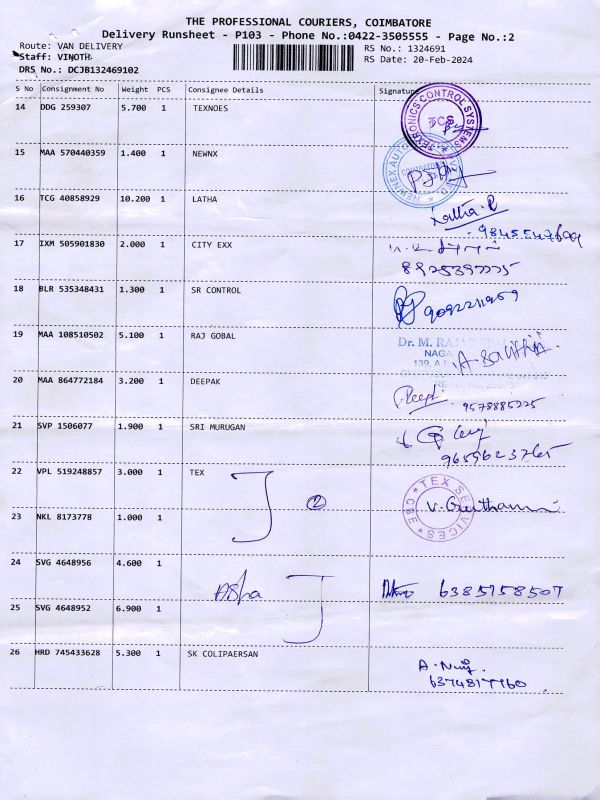 THE PROFESSIONAL COURIERS, COIMBATORE
Delivery Runsheet - P103 - Phone No.:0422-3505555 - Page No.:2
Route: VAN DELIVERY
RS No.: 1324691
Staff: VINOTH
RS Date: 20-Feb-2024
DRS No.: DCJB132469102
S No Consignment No Weight PCS Consignee Details Signature
14 DDG 259307 5.700 1 TEXNOES
TEXTRONICS CONTROL SYSTEMS
TCS
15 MAA 570440359 1.400 1 NEWNX
16 TCG 40858929 10.200 1 LATHA
Latha.R
17 IXM 505901830 2.000 1 CITY EXX
18 BLR 535348431 1.300 1 SR CONTROL
19 MAA 108510502 5.100 1 RAJ GOBAL
20 MAA 864772184 3.200 1 DEEPAK
9578885225
21 SVP 1506077 1.900 1 SRI MURUGAN
9659623765
22 VPL 519248857 3.000 1 TEX
2
TEX SERVICES
CBE
23 NKL 8173778 1.000 1
24 SVG 4648956 4.600 1
Asha
6385758507
25 SVG 4648952 6.900 1
26 HRD 745433628 5.300 1 SK COLIPAERSAN
6374817760